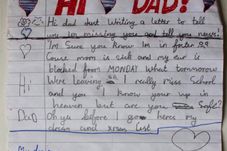 Hi DAD!
Hi dad Just writing a letter to tell
you Im missing you and tell you news!
Im Sure you Know Im in foster
Couse mom is sick and my ear is
blocked from MONDAY What tommorow
Hi Were leaving I really miss School
and you I know your up in
heaven but are you
Dad Oh ya before I go heres my
xmas list